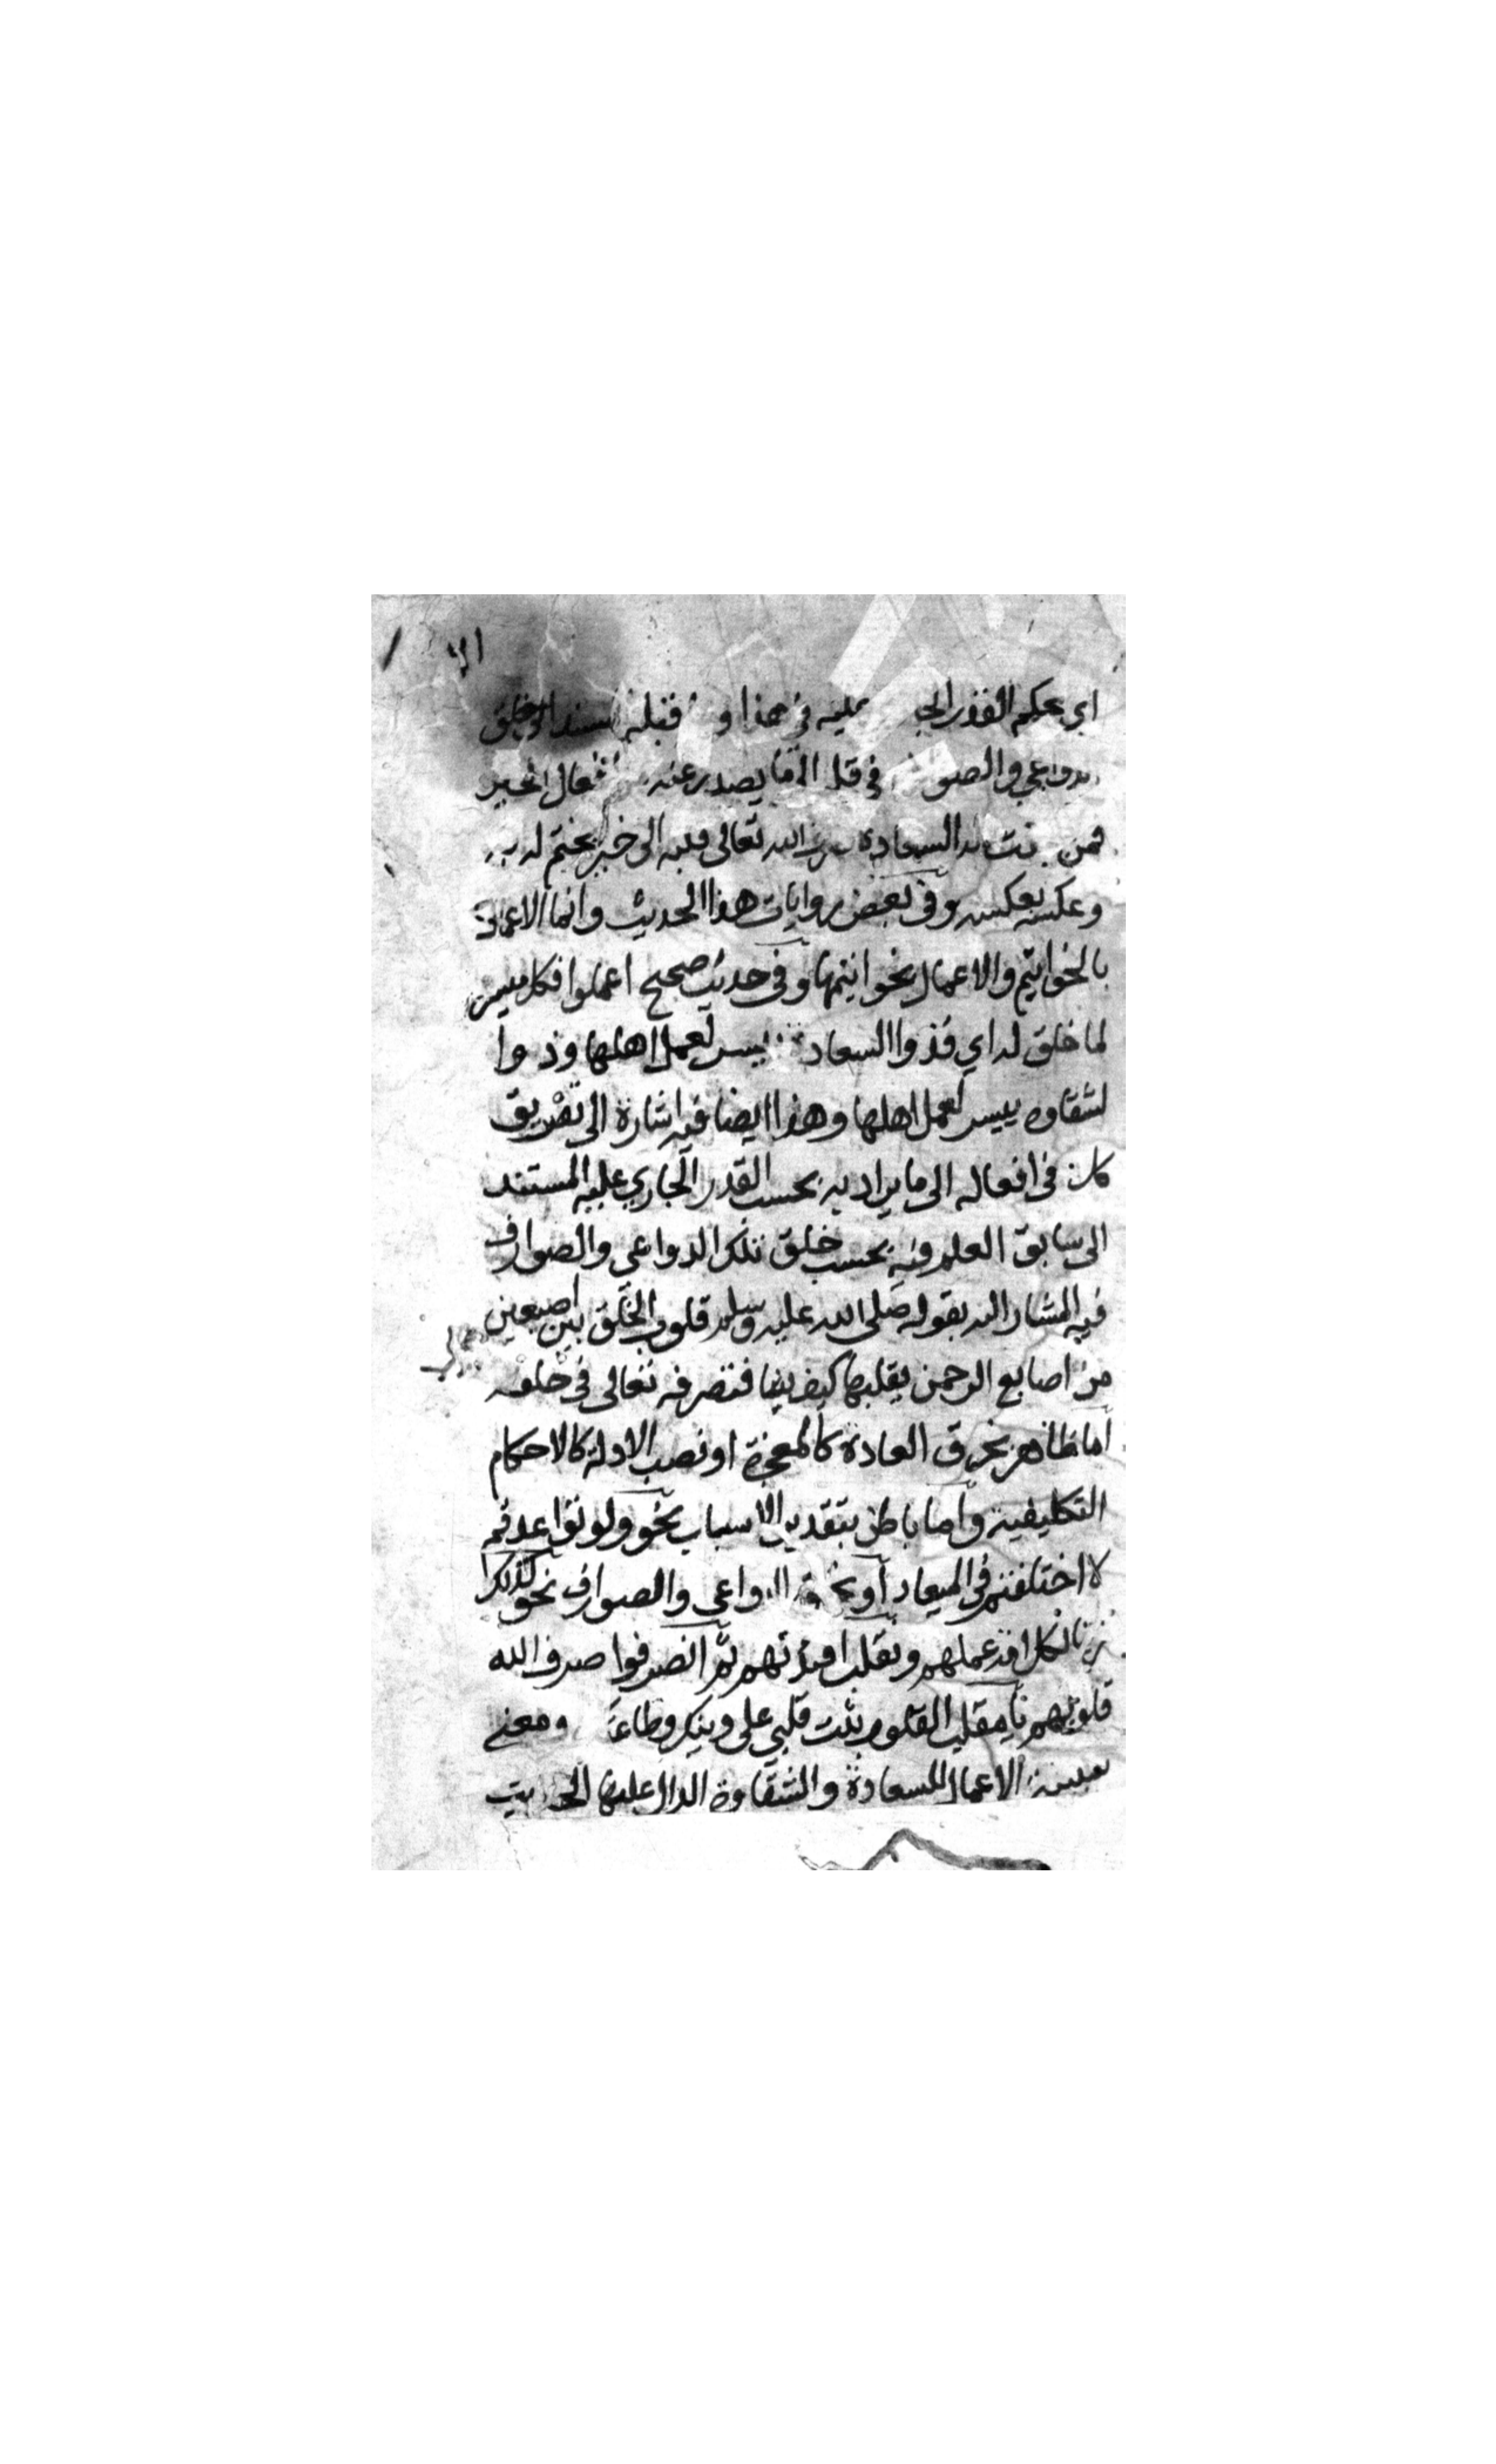 اي بحكم القدر الجا عليه في هذا و قبله المستند الى خلق
الدواعي والصو في قلبه الى ما يصدر عنه افعال الخير
فمن له السعادة الله تعالى قلبه الى خير يختم له به
وعكسه بعكسه وفي بعض روايات هذا الحديث وانما الاعمال
بالخواتيم والاعمال بخواتيمها وفي حديث صحيح اعملوا فكل ميسر
لما خلق له اي فذوا السعادة ييسر لعمل اهلها وذوا
لشقاوه ييسر لعمل اهلها وهذا ايضا فيه اشارة الى تصريف
كل في افعاله الى ما يراد به بحسب القدر الجاري عليه المستند
الى سابق العلم فيه بحسب خلق تلك الدواعي والصوارف
فيه المشار اليه بقوله صلى الله عليه وسلم قلوب الخلق بين اصبعين
من اصابع الرحمن يقلبها كيف يشا فتصرفه تعالى في خلقه
اما ظاهر بخرق العادة كالمعجزة او نصب الادلة كالاحكام
التكليفية واما باطن بتقدير الاسباب نحو ولو تواعدتم
لاختلفتم في الميعاد او بخلق الدواعي والصوارف نحو كذلك
زينا لكل امة عملهم ونقلب افئدتهم ثم انصرفوا صرف الله
قلوبهم يا مقلب القلوب ثبت قلبي على دينك وطاعتك ومعنى
الاعمال للسعادة والشقاوة الدال عليها الحديث